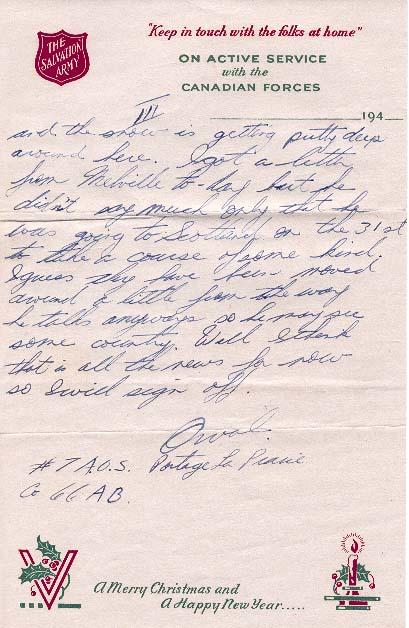 THE
SALVATION
ARMY
"Keep in touch with the folks at home"
ON ACTIVE SERVICE
with the
CANADIAN FORCES
194
III
and the snow is getting putty deep
around here. I got a letter
from Melville to-day but he
didn't say much only that he
was going to Scotland on the 31st
to take a course of some kind.
I guess they have been moved
around a little from the way
he talks anyways so he may see
some country. Well I think
that is all the news for now
so I will sign off.
Orval.
#7 A.O.S. Portage La Prairie
Co 66 A.B.
V
A Merry Christmas and
A Happy New Year.....